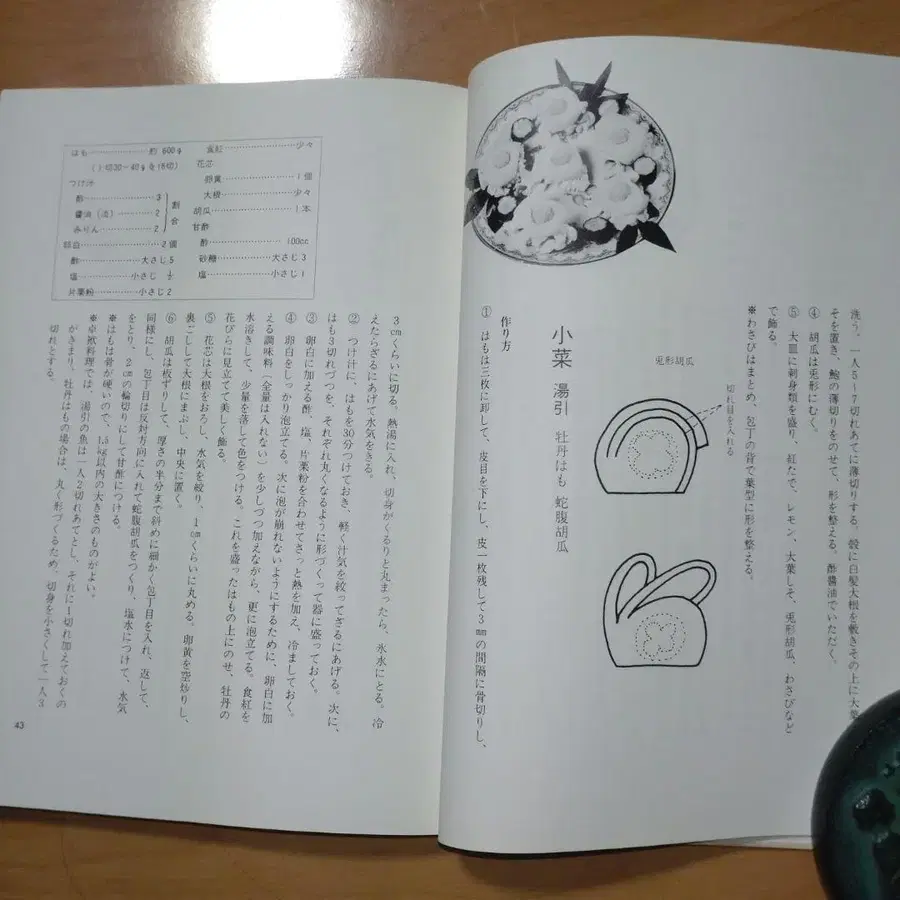 洗う。一人5〜7切れあてに薄切りする。殻に白髪大根を敷きその上に大葉
そを置き、鮑の薄切りをのせて、形を整える。酢醬油でいただく。
④ 胡瓜は兎形にむく。
⑤ 大皿に刺身類を盛り、紅たで、レモン、大葉しそ、兎形胡瓜、わさびなど
で飾る。
※わさびはまとめ、包丁の背で葉型に形を整える。
切れ目を入れる
兎形胡瓜
小菜 湯引 牡丹はも 蛇腹胡瓜
作り方
① はもは三枚に卸して、皮目を下にし、皮一枚残して3㎜の間隔に骨切りし、
はも 約600g
( )切30〜40gを
つけ汁
酢 3
醬油(淡) 2
みりん 2
割合
卵白 2個
酢 大さじ5
塩 小さじ½
片栗粉 小さじ2
食紅 少々
花芯
卵黄 1個
大根 少々
胡瓜 1本
甘酢
酢 100cc
砂糖 大さじ3
塩 小さじ1
3㎝くらいに切る。熱湯に入れ、切身がくるりと丸まったら、氷水にとる。冷
えたらざるにあげて水気をきる。
② つけ汁に、はもを30分つけておき、軽く汁気を絞ってざるにあげる。次に、
はも3切れづつを、それぞれ丸くなるように形づくって器に盛っておく。
③ 卵白に加える酢、塩、片栗粉を合わせてさっと熱を加え、冷ましておく。
④ 卵白をしっかり泡立てる。次に泡が崩れないようにするために、卵白に加
える調味料(全量は入れない)を少しづつ加えながら、更に泡立てる。食紅を
水溶きして、少量を落して色をつける。これを盛ったはもの上にのせ、牡丹の
花びらに見立てて美しく飾る。
⑤ 花芯は大根をおろし、水気を絞り、1㎝くらいに丸める。卵黄を空炒りし、
裏ごしして大根にまぶし、中央に置く。
⑥ 胡瓜は板ずりして、厚さの半分まで斜めに細かく包丁目を入れ、返して、
同様にし、包丁目は反対方向に入れて蛇腹胡瓜をつくり、塩水につけて、水気
をとり、2㎝の輪切りにして甘酢につける。
※はもは骨が硬いので、1.5㎏以内の大きさのものがよい。
※卓袱料理では、湯引の魚は一人2切れあてとし、それに1切れ加えておくの
がきまり、牡丹はもの場合は、丸く形づくるため、切身を小さくして一人3
切れとする。
43